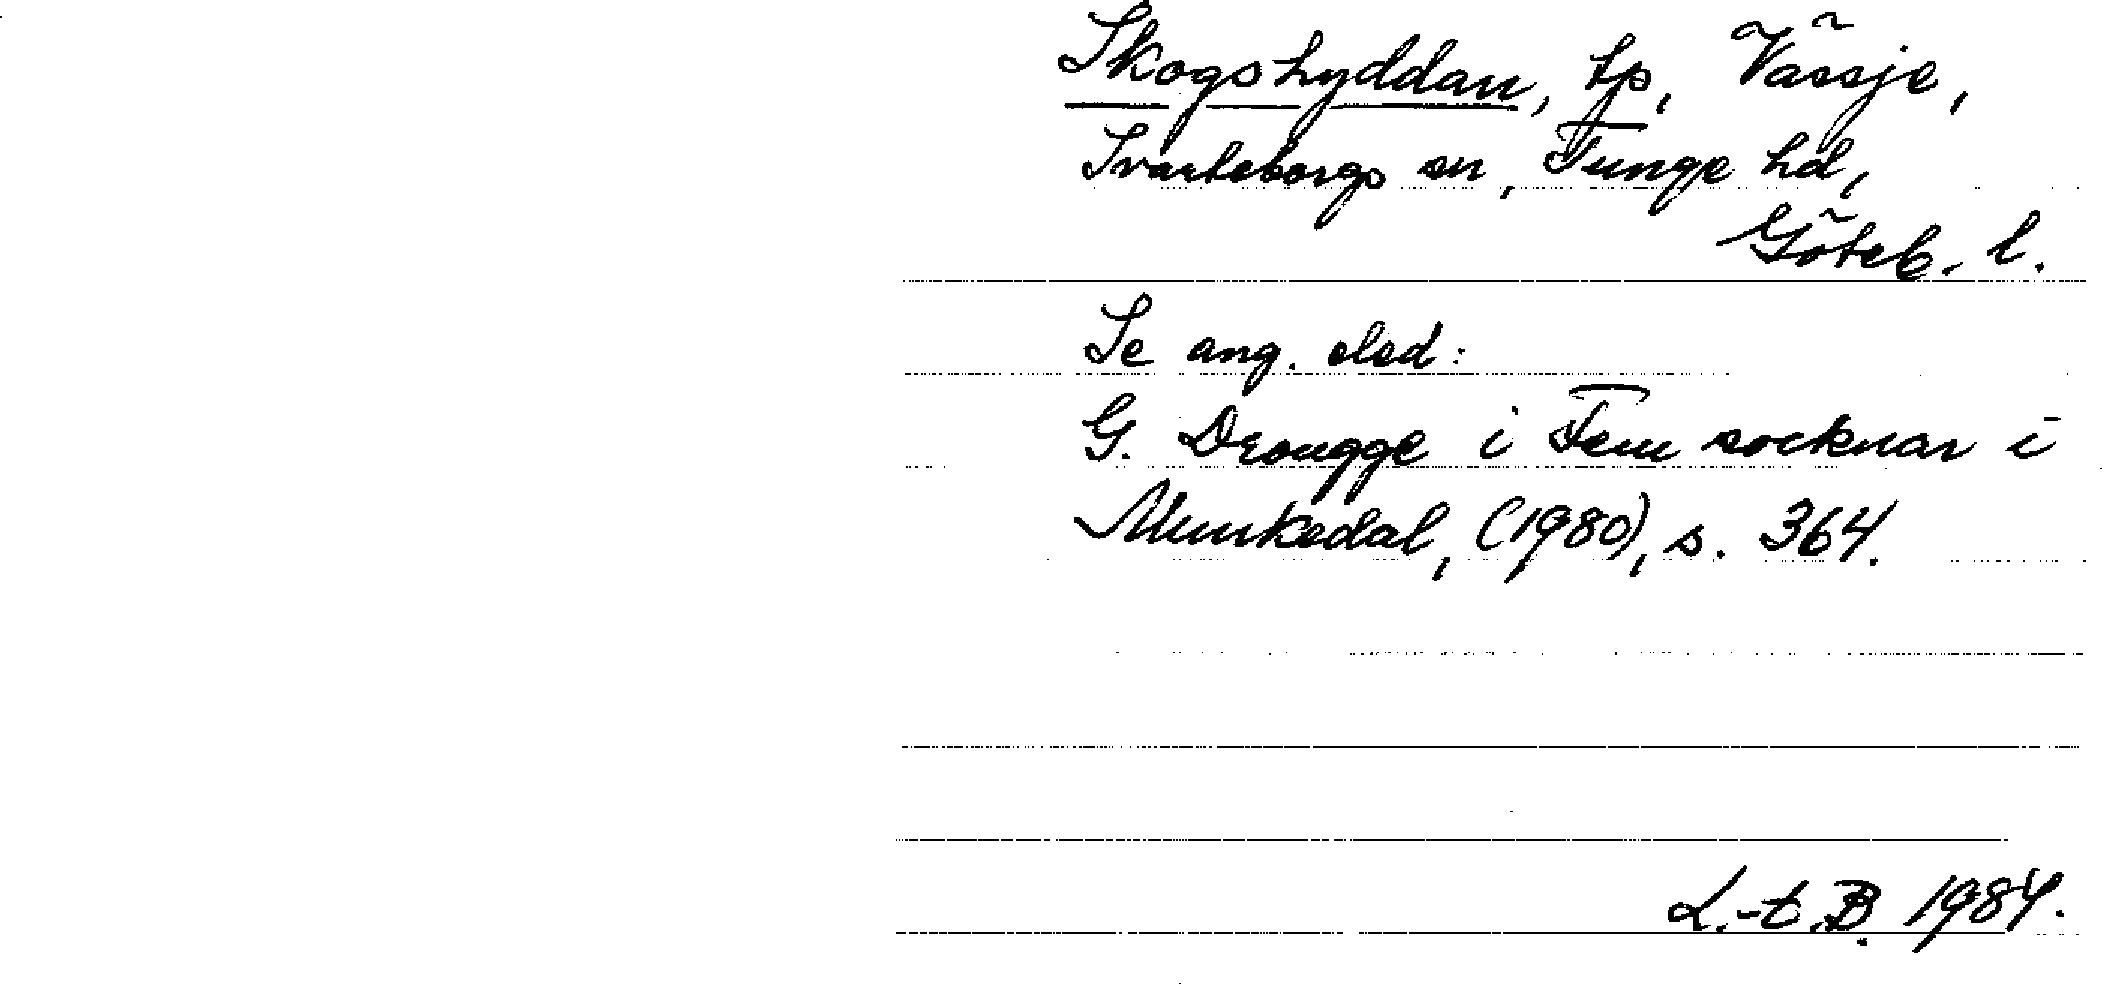 Skogshyddan, tp, Vässje,
Svarteborgs sn, Tunge hd,
Göteb. l.
Se ang. eled:
G. Drougge i Fem socknar i
Munkedal, (1980), s. 364.
L.-t. B. 1984.